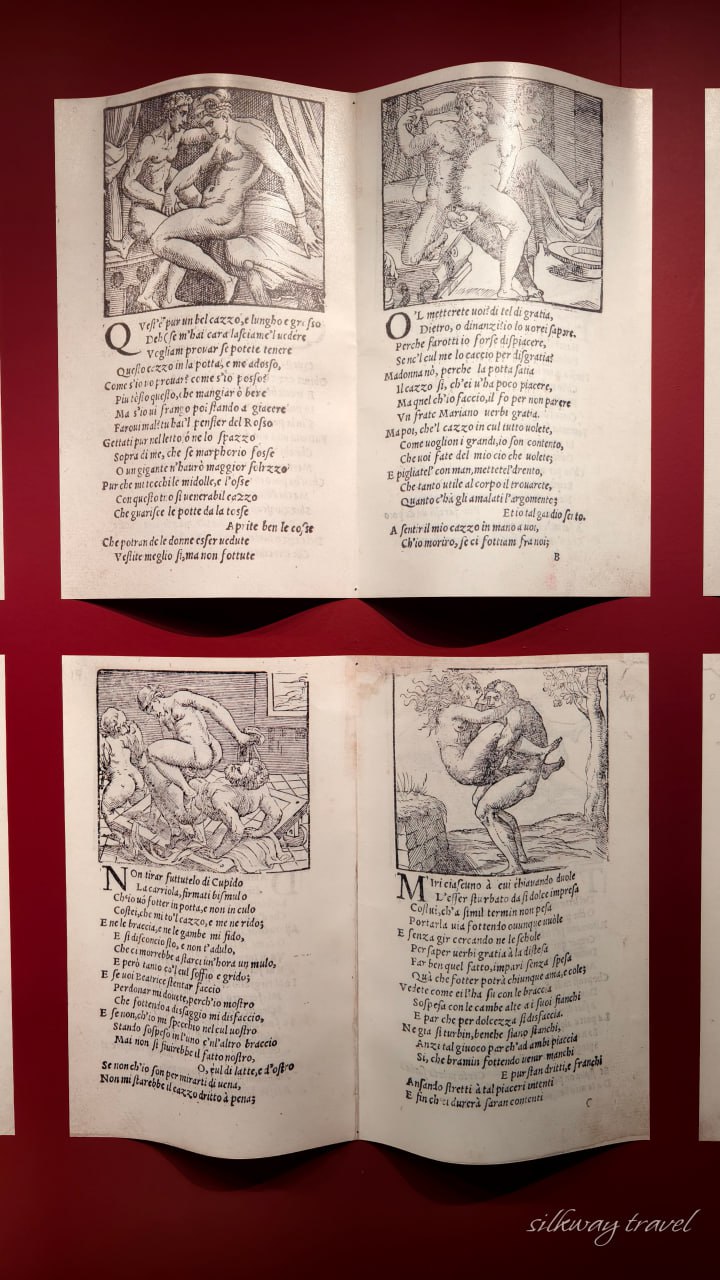 Questo è pur un bel cazzo, e lungho e grosso
Deh se m'hai cara lasciamel vedere
Vogliam provar se potete tenere
Questo cazzo in la potta, e me adosso,
Come s'io vo provar? come s'io posso?
Più tosto questo, che mangiar ò bere
Ma s'io vi frango poi stando a giacere
Farovi mal? tu hai'l pensier del Rosso
Gettati pur nel letto, ò ne lo spazzo
Sopra di me, che se marphorio fosse
O un gigante n'haurò maggior solazzo
Pur che mi tocchi le midolle, e l'osse
Con questo tuo si venerabil cazzo
Che guarisce le potte da la tosse
Aprite ben le cosse
Che potran de le donne esser uedute
Vestite meglio si, ma non fottute
O 'L metterete voi? di tel di gratia,
Dietro, o dinanzi? io lo uorei sapere,
Perche farotti io forse dispiacere,
Se ne'l cul me lo caccio per disgratia?
Madonna nò, perche la potta satia
Il cazzo si, ch'ei u'ha poco piacere,
Ma quel ch'io faccio, il fo per non parere
Vn frate Mariano uerbi gratia.
Ma poi, che'l cazzo in cul tutto uolete,
Come uoglion i grandi, io son contento,
Che uoi fate del mio ciò che uolete;
E pigliatel' con man, mettetel' drento,
Che tanto utile al corpo il trouarete,
Quanto c'hà gli amalati l'argomento;
Et io tal gaudio sento.
A sentir il mio cazzo in mano a uoi,
Ch'io moriro, se ci fottiam fra noi;
B
Non tirar futtutelo di Cupido
La carriola, firmati bismulo
Ch'io uò fotter in potta, e non in culo
Costei, che mi to'l cazzo, e me ne rido;
E ne le braccia, e ne le gambe mi fido,
E si disconcio sto, e non t'adulo,
Che ci morrebbe a starci un'hora un mulo,
E però tanto co'l cul soffio e grido;
E se uoi Beatrice stentar faccio
Perdonar mi douete, perch'io mostro
Che fottendo a disaggio mi disfaccio,
E se non, ch'io mi specchio nel cul uostro
Stando sospeso in l'uno e'n l'altro braccio
Mai non si finirebbe il fatto nostro,
O, cul di latte, e d'ostro
Se non ch'io son per mirarti di uena,
Non mi starebbe il cazzo dritto à pena;
MIri ciascuno à cui chiavando duole
L'esser sturbato da si dolce impresa
Costui, ch'a simil termin non pesa
Portarla uia fottendo ouunque uuole
E senza gir cercando ne le schole
Per saper uerbi gratia à la distesa
Far ben quel fatto, impari senza spesa
Quà che fotter potrà chiunque ama, e cole;
Vedete come ei l'ha su con le braccia
Sospesa con le gambe alte a i suoi fianchi
E par che per dolcezza si disfaccia.
Ne gia si turbin, benche siano stanchi,
Anzi tal giuoco par ch'ad ambi piaccia
Si, che bramin fottendo uenir manchi
E pur stan dritti, e franchi
Ansando stretti à tal piaceri intenti
E fin ch'ei durerà saran contenti
C
silkway travel